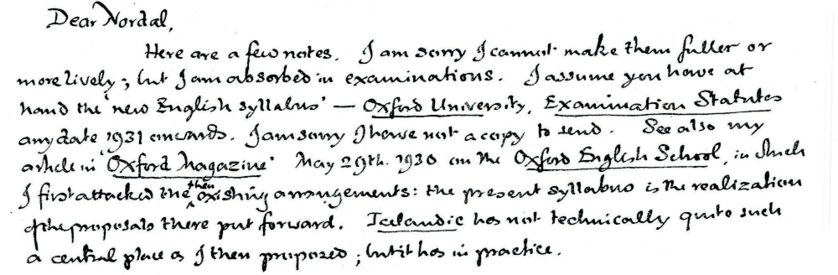 Dear Nordal,
Here are a few notes. I am sorry I cannot make them fuller or
more lively; but I am absorbed in examinations. I assume you have at
hand the 'new English syllabus' — Oxford University, Examination Statutes
any date 1931 onwards. I am sorry I have not a copy to send. See also my
article in 'Oxford Magazine' May 29th. 1930 on the Oxford English School, in which
I first attacked the then existing arrangements: the present syllabus is the realization
of the proposals there put forward. Icelandic has not technically quite such
a central place as I then proposed; but it has in practice.